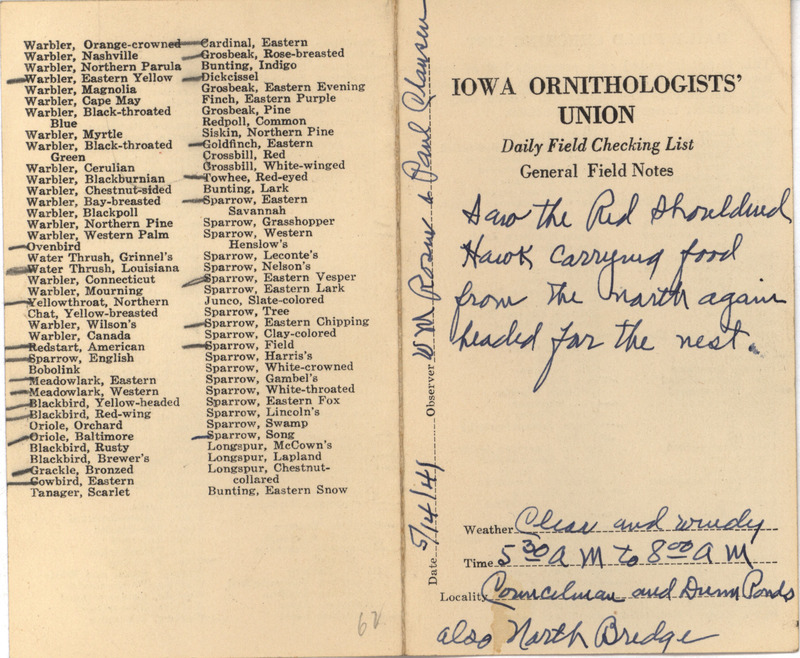 Warbler, Orange-crowned
Warbler, Nashville
Warbler, Northern Parula
Warbler, Eastern Yellow
Warbler, Magnolia
Warbler, Cape May
Warbler, Black-throated
Blue
Warbler, Myrtle
Warbler, Black-throated
Green
Warbler, Cerulian
Warbler, Blackburnian
Warbler, Chestnut-sided
Warbler, Bay-breasted
Warbler, Blackpoll
Warbler, Northern Pine
Warbler, Western Palm
Ovenbird
Water Thrush, Grinnel's
Water Thrush, Louisiana
Warbler, Connecticut
Warbler, Mourning
Yellowthroat, Northern
Chat, Yellow-breasted
Warbler, Wilson's
Warbler, Canada
Redstart, American
Sparrow, English
Bobolink
Meadowlark, Eastern
Meadowlark, Western
Blackbird, Yellow-headed
Blackbird, Red-wing
Oriole, Orchard
Oriole, Baltimore
Blackbird, Rusty
Blackbird, Brewer's
Grackle, Bronzed
Cowbird, Eastern
Tanager, Scarlet
Cardinal, Eastern
Grosbeak, Rose-breasted
Bunting, Indigo
Dickcissel
Grosbeak, Eastern Evening
Finch, Eastern Purple
Grosbeak, Pine
Redpoll, Common
Siskin, Northern Pine
Goldfinch, Eastern
Crossbill, Red
Crossbill, White-winged
Towhee, Red-eyed
Bunting, Lark
Sparrow, Eastern
Savannah
Sparrow, Grasshopper
Sparrow, Western
Henslow's
Sparrow, Leconte's
Sparrow, Nelson's
Sparrow, Eastern Vesper
Sparrow, Eastern Lark
Junco, Slate-colored
Sparrow, Tree
Sparrow, Eastern Chipping
Sparrow, Clay-colored
Sparrow, Field
Sparrow, Harris's
Sparrow, White-crowned
Sparrow, Gambel's
Sparrow, White-throated
Sparrow, Eastern Fox
Sparrow, Lincoln's
Sparrow, Swamp
Sparrow, Song
Longspur, McCown's
Longspur, Lapland
Longspur, Chestnut-
collared
Bunting, Eastern Snow
62
Date 5/14/41 Observer W M Rosine & Paul Clausen
IOWA ORNITHOLOGISTS'
UNION
Daily Field Checking List
General Field Notes
Saw the Red Shouldered
Hawk carrying food
from the north again
headed for the nest.
Weather Clear and windy
Time 5 30 A M to 8 00 A M
Locality Councilman and Dunn Ponds
also North Bridge